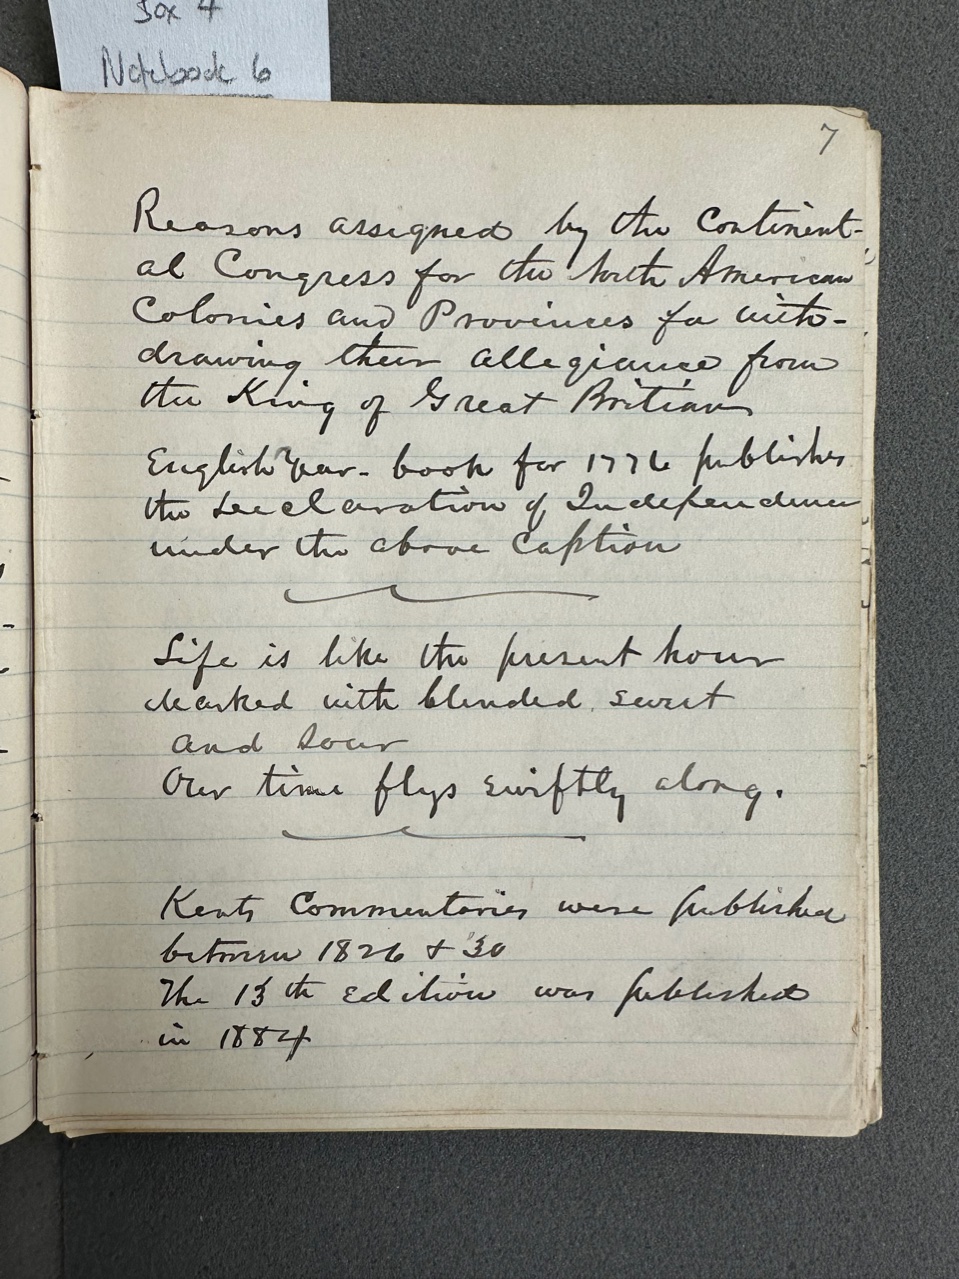 Box 4
Notebook 6
7
Reasons assigned by the Continent-
al Congress for the North American
Colonies and Provinces for with-
drawing their allegiance from
the King of Great Britian
English Year-book for 1776 publishes
the Decclaration of Independence
under the above Caption
Life is like the present hour
Marked with blended sweet
and sour
Our time flys swiftly along.
Kents Commentaries were published
between 1826 & 30
The 13th Edition was published
in 1884